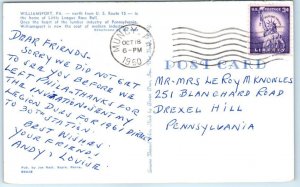 WILLIAMSPORT, PA. — north from U. S. Route 15 — is
the home of Little League Base Ball.
Once the heart of the lumber industry of Pennsylvania,
Williamsport is now the seat of modern industry
DEAR FRIENDS-
SORRY WE DID NOT GET
TO SEE YOU BEFORE WE
LEFT PHILA-THANKS FOR
THE INVITATION-SENT MY
LEGION DUES FOR 1961 DIRECT
TO HARRISBURG
BEST WISHES.
YOUR FRIEND,
ANDY, LOUISE.
PA.
OCT 18
6-PM
1960
3¢
LIBERTY
POST CARD
MR-MRS LEROY MCKNOWLES
251 BLANCHARD ROAD
DREXEL HILL
PENNSYLVANIA